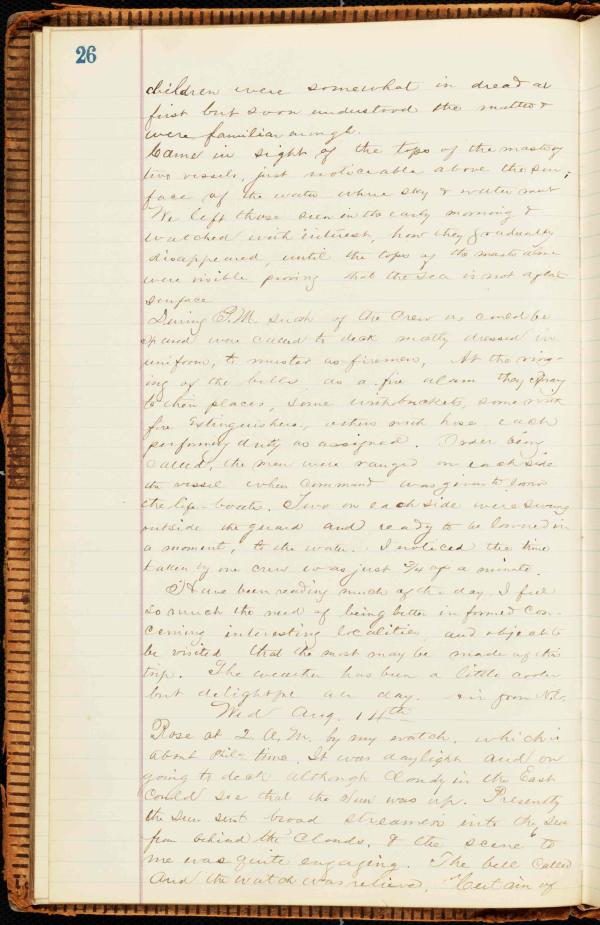 26
children were somewhat in dread at
first but soon understood the matter &
were familiar enough.
Came in sight of the tops of the masts of
two vessels, just noticeable above the sur-
face of the water where sky & water met
We left those seen in the early morning &
watched with interest, how they gradually
disappeared, until the tops of the masts alone
were visible proving that the sea is not a flat
surface
During P.M. such of the Crew as could be
spared were called to deck mostly dressed in
uniform, to muster as firemen. At the ring-
ing of the bells as a fire alarm they spring
to their places, some with buckets, some with
fire Extinguishers, others with hose each
performing duty as assigned. Order being
called, the men were ranged on each side
the vessel when command was given to lower
the life-boats. Two on each side were swung
outside the guard and ready to be lowered in
a moment, to the water. I noticed the time
taken by one crew was just 3/4 of a minute.
Have been reading much of the day. I feel
so much the need of being better informed con-
cerning interesting localities and objects to
be visited that the most may be made of this
trip. The weather has been a little cooler
but delightful all day. air from N.E.
Wed Aug. 14th
Rose at 2 A.M. by my watch, which is
about Phil- time. It was daylight and on
going to deck although Cloudy in the East
could see that the Sun was up. Presently
the Sun sent broad streamers into the sea
from behind the Clouds, & the scene to
me was quite engaging. The bell Called
and the watch was relieved. Certain of